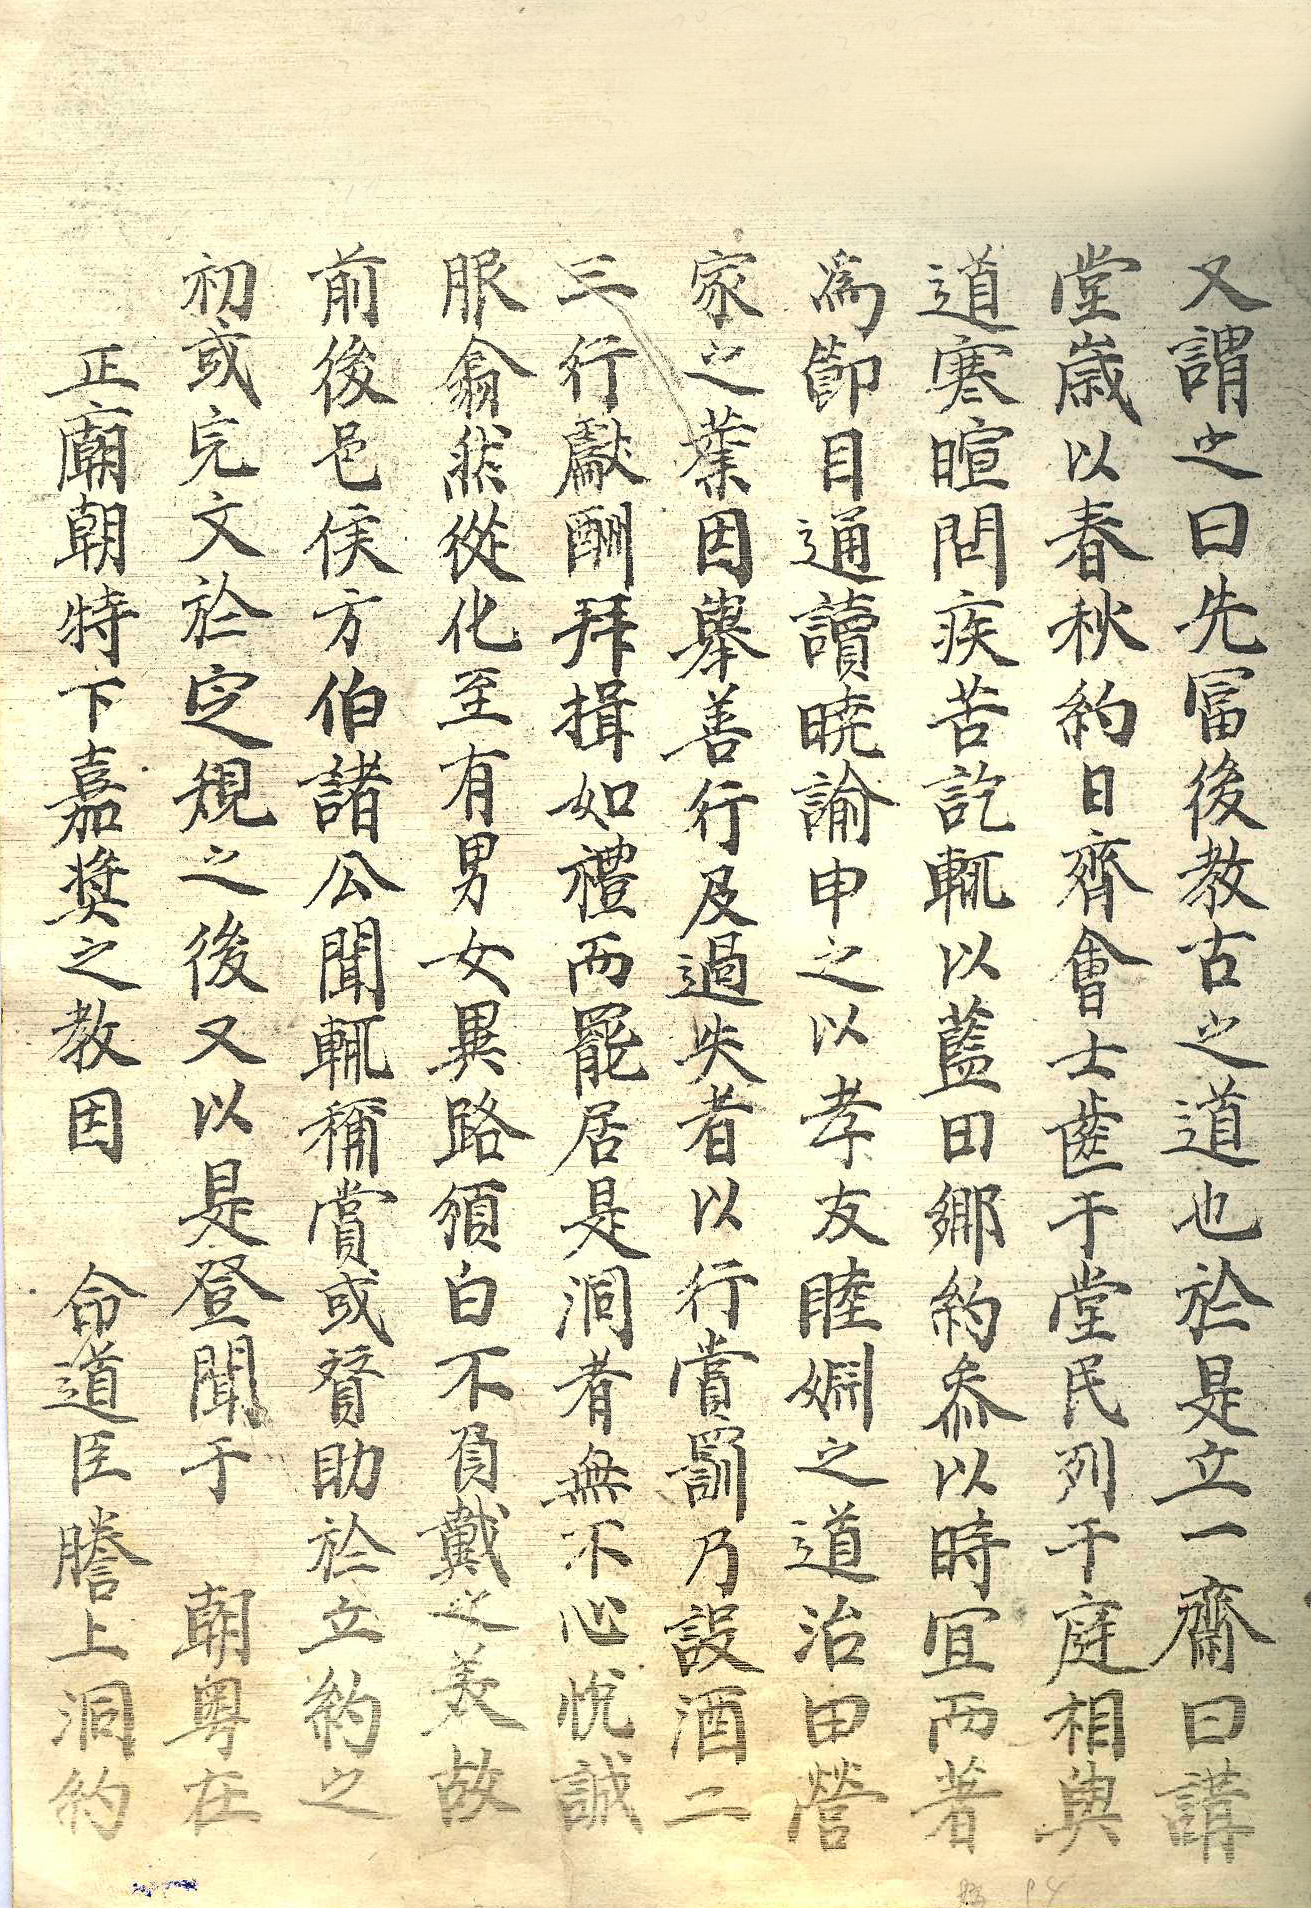 又謂之曰先富後教古之道也於是立一齋曰講
堂歲以春秋約日齊會士齒于堂民列于庭相與
道寒暄問疾苦訖輒以藍田鄉約叅以時宜而著
爲節目通讀曉諭申之以孝友睦婣之道治田營
家之業因擧善行及過失者以行賞罰乃設酒二
三行獻酬拜揖如禮而罷居是洞者無不心悅誠
服翕然從化至有男女異路頒白不負戴之美故
前後邑侯方伯諸公聞輒稱賞或賛助於立約之
初或完文於定規之後又以是登聞于　朝粤在
正廟朝特下嘉奬之教因　命道臣謄上洞約